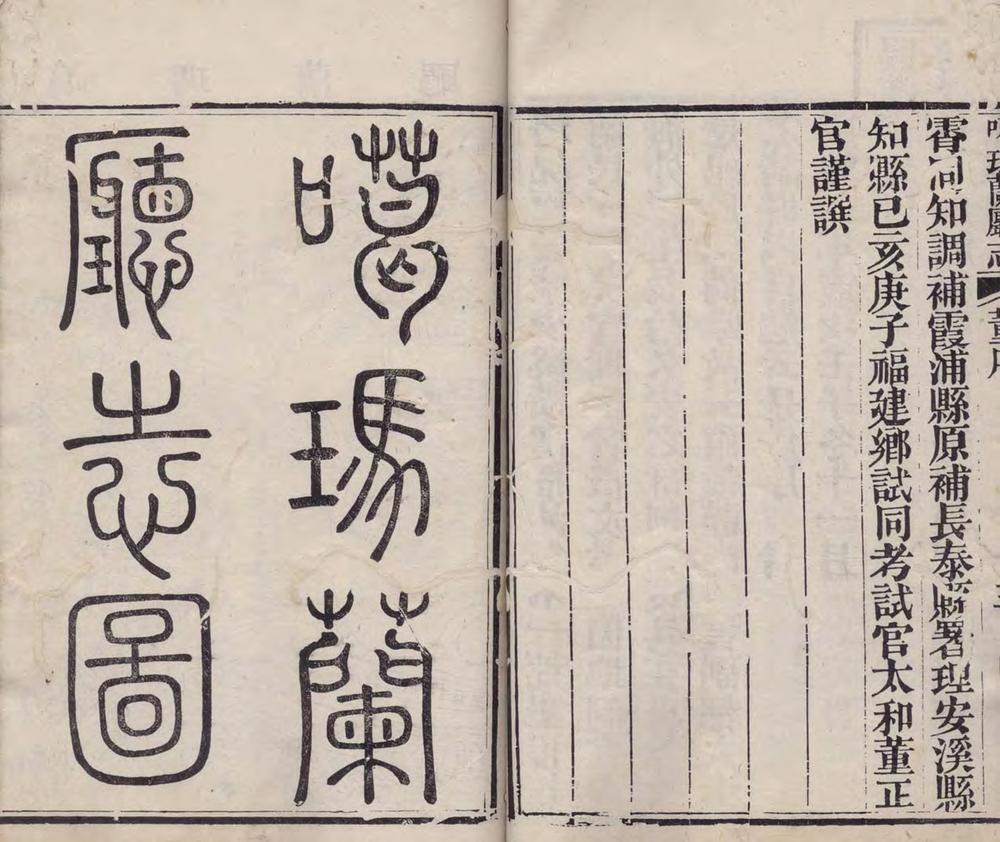 噶瑪蘭廳志 董序
霄同知調補霞浦縣原補長泰縣署理安溪縣
知縣已亥庚子福建鄉試同考試官太和董正
官謹譔
噶瑪蘭
廳志圖